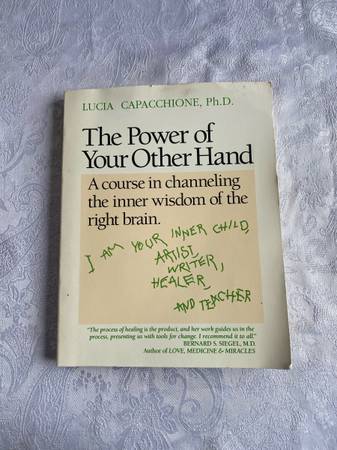 LUCIA CAPACCHIONE, Ph.D.
The Power of
Your Other Hand
A course in channeling
the inner wisdom of the
right brain.
I AM YOUR INNER CHILD,
ARTIST,
WRITER,
HEALER,
AND TEACHER
"The process of healing is the product, and her work guides us in the
process, presenting us with tools for change. I recommend it to all."
BERNARD S. SIEGEL, M.D.
Author of LOVE, MEDICINE & MIRACLES